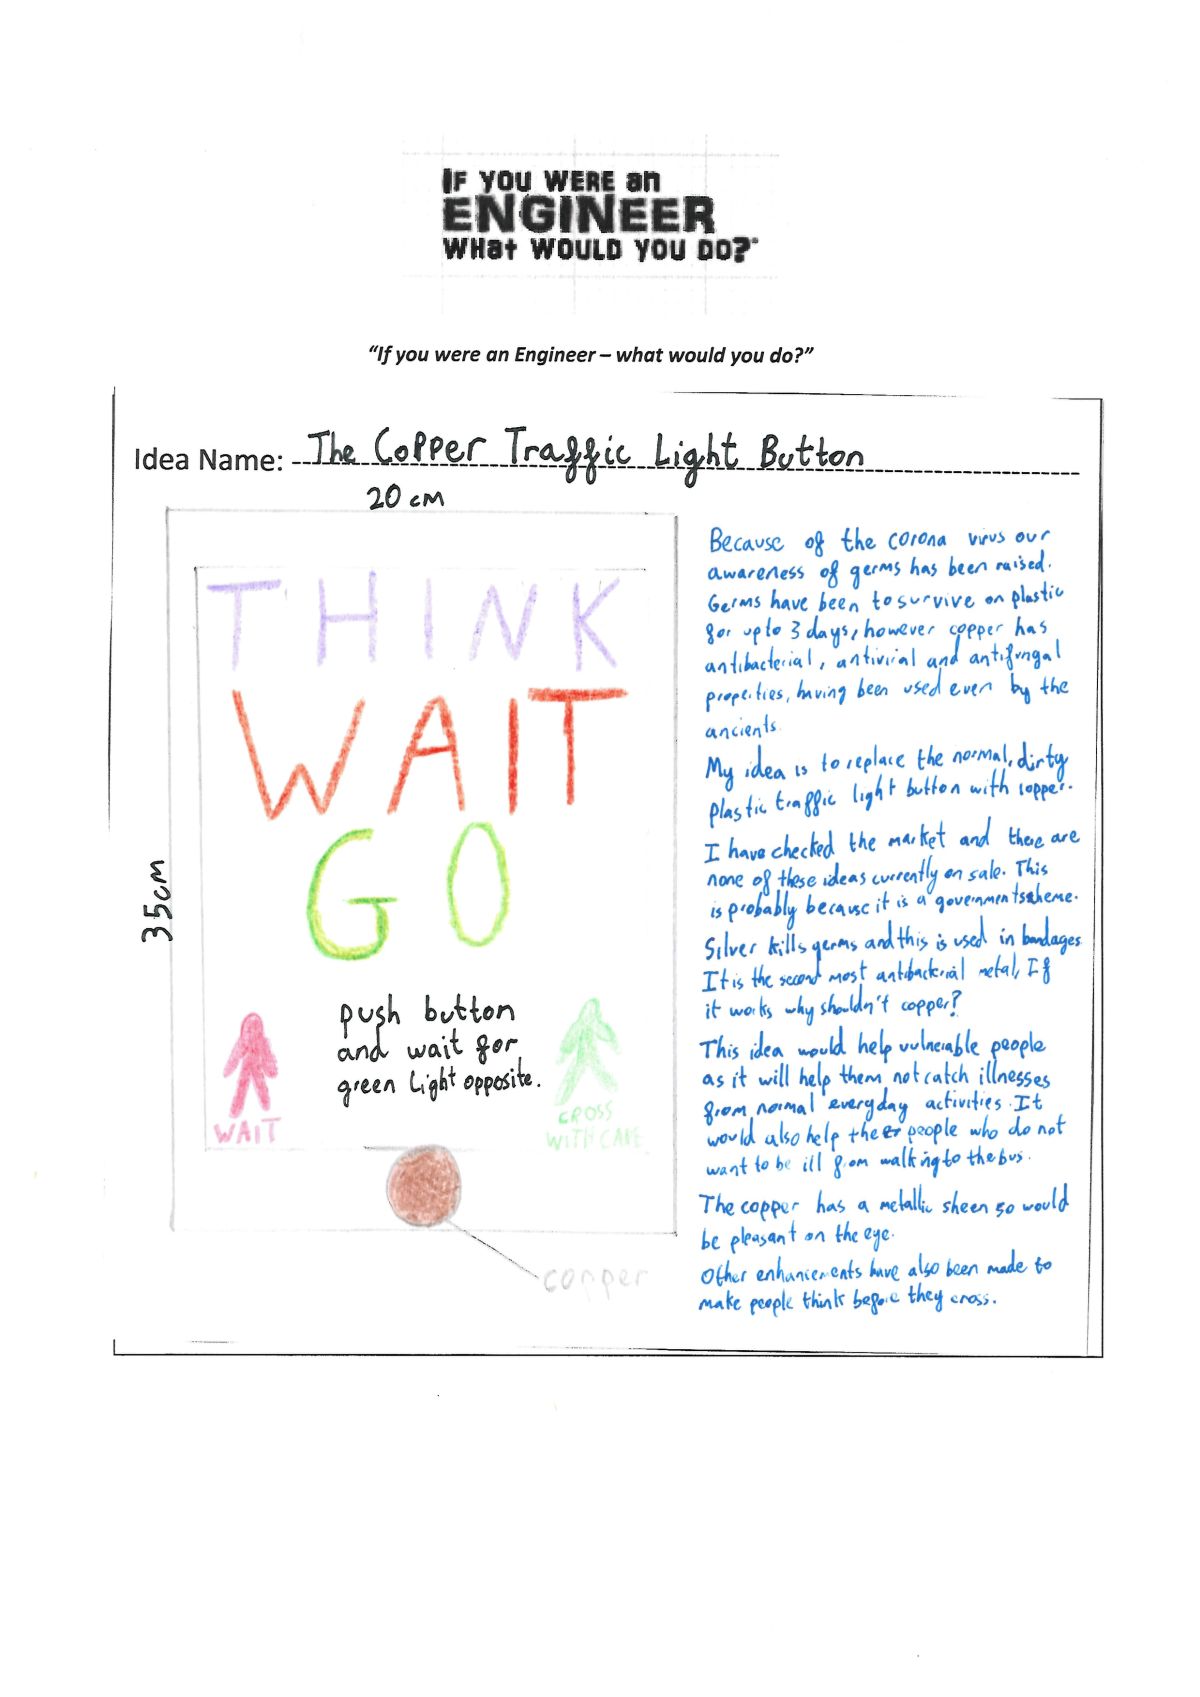 IF YOU WERE an
ENGINEER
WHat WOULD YOU DO?
"If you were an Engineer – what would you do?"
Idea Name: The Copper Traffic Light Button
20 cm
35cm
THINK
WAIT
GO
push button
and wait for
green light opposite.
WAIT
CROSS
WITH CARE
copper
Because of the corona virus our
awareness of germs has been raised.
Germs have been to survive on plastic
for up to 3 days, however copper has
antibacterial, antiviral and antifungal
properties, having been used even by the
ancients.
My idea is to replace the normal, dirty
plastic traffic light button with copper.
I have checked the market and there are
none of these ideas currently on sale. This
is probably because it is a government scheme.
Silver kills germs and this is used in bandages
It is the second most antibacterial metal, If
it works why shouldn't copper?
This idea would help vulnerable people
as it will help them not catch illnesses
from normal everyday activities. It
would also help the people who do not
want to be ill from walking to the bus.
The copper has a metallic sheen so would
be pleasant on the eye.
Other enhancements have also been made to
make people think before they cross.